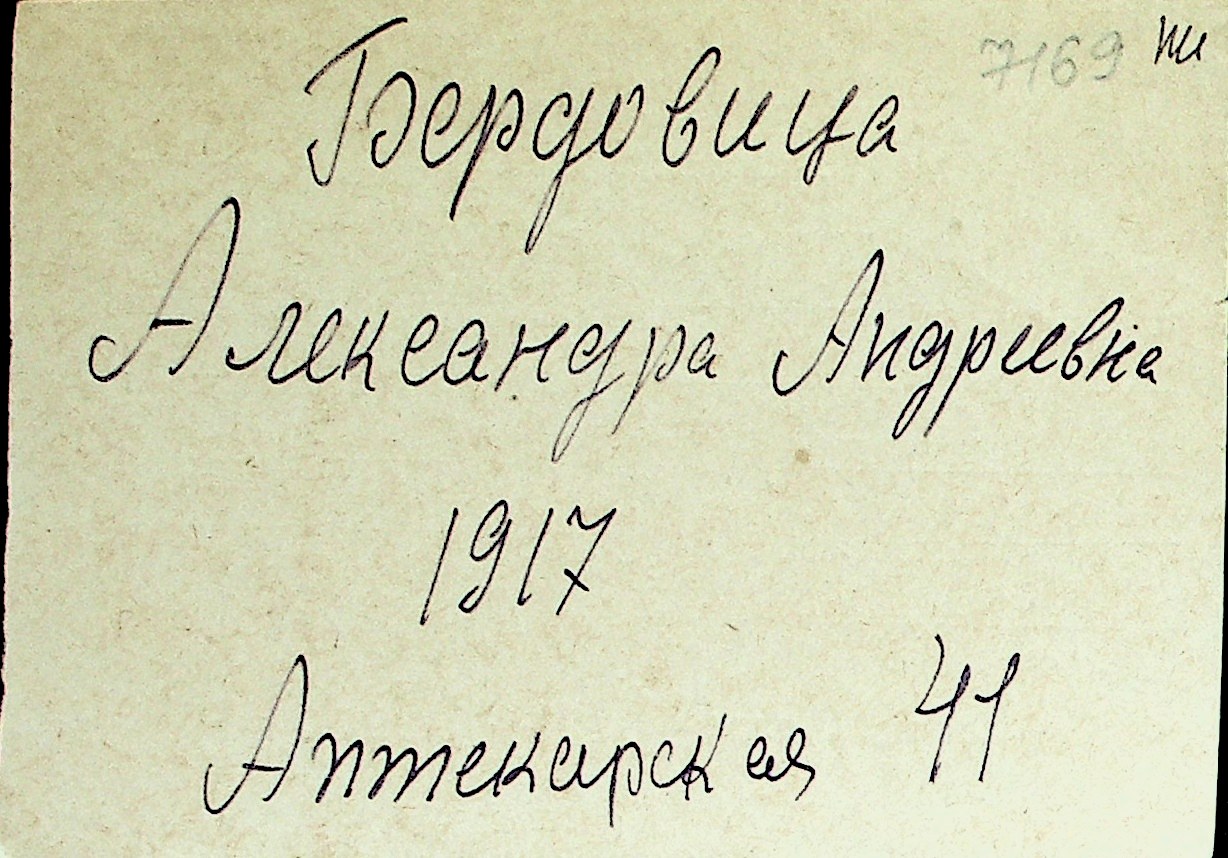 7169
Бердовица
Александра Андреевна
1917
Аптекарская 41